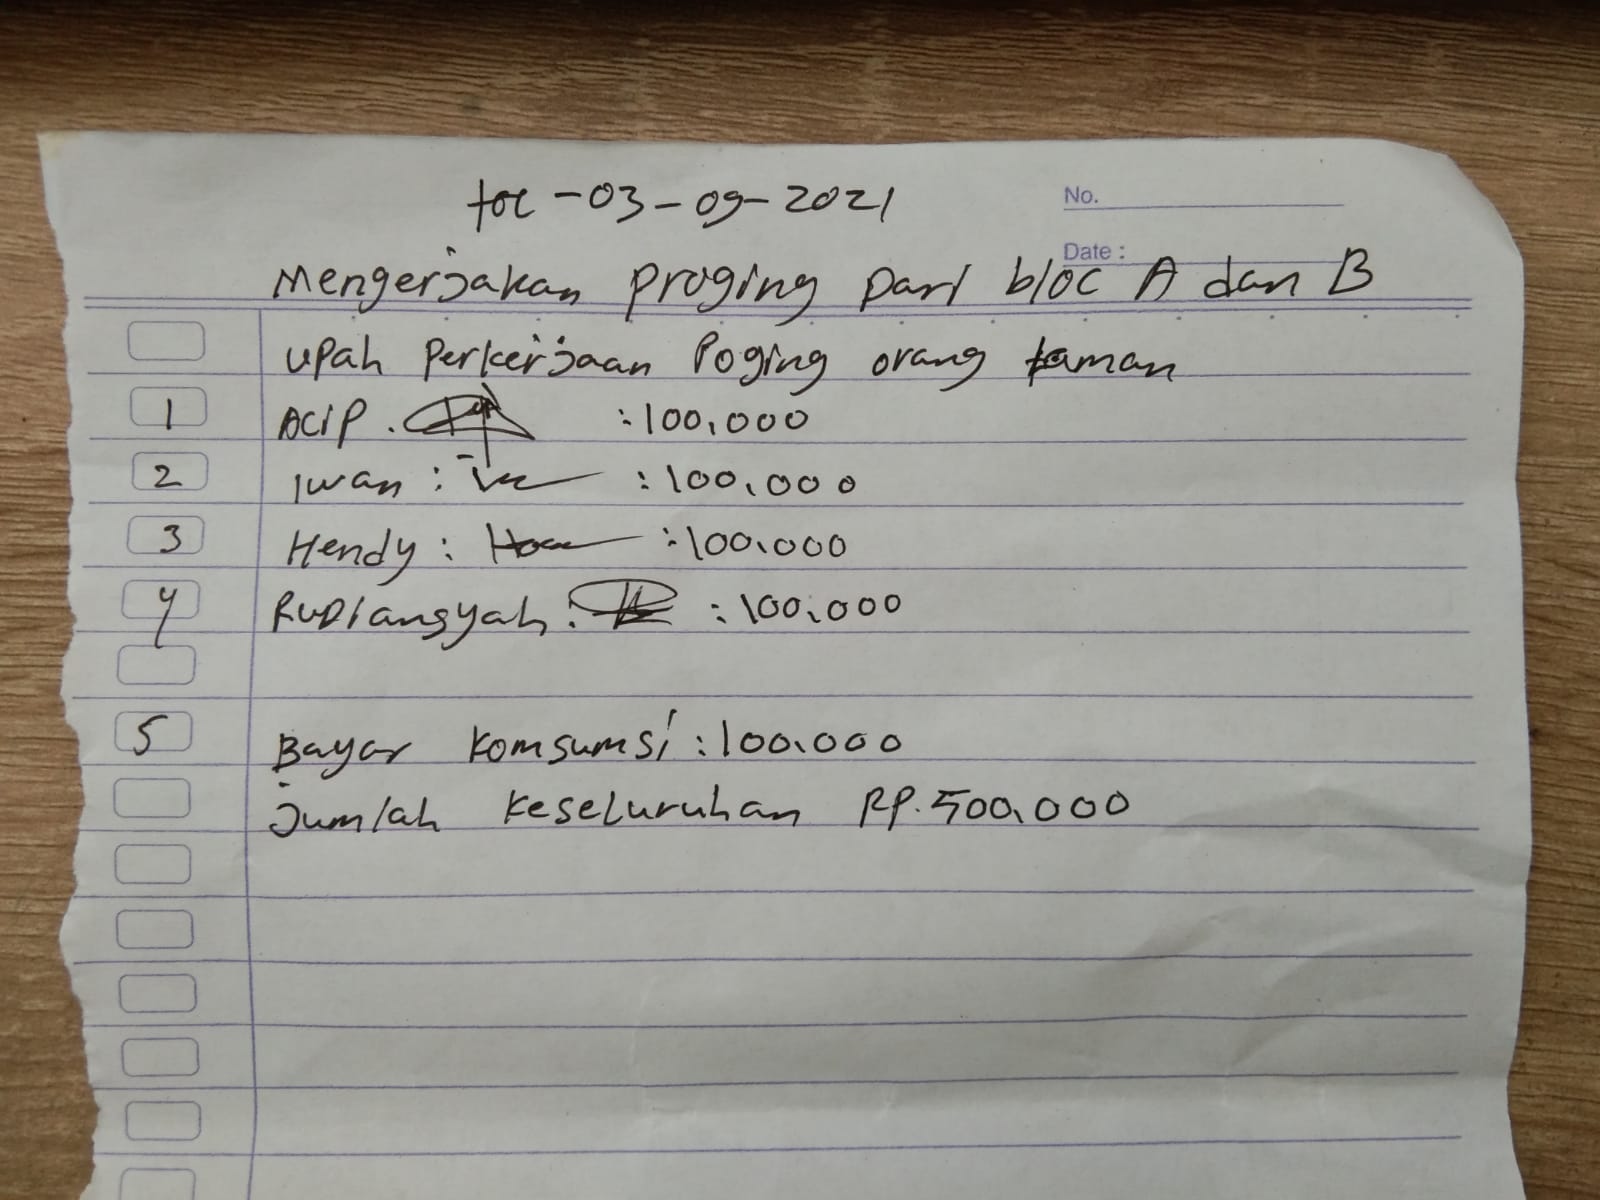 tgl - 03 - 09 - 2021
No.
Date :
Mengerjakan proging Dari bloc A dan B
upah Perkerjaan Poging orang taman
1 Acip . : 100.000
2 Iwan : : 100.000
3 Hendy : : 100.000
4 RuDiansyah : : 100.000
5 Bayar Komsumsi : 100.000
Jumlah Keseluruhan RP. 500.000